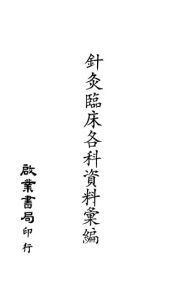 針灸臨床各科資料彙編
啟業書局印行